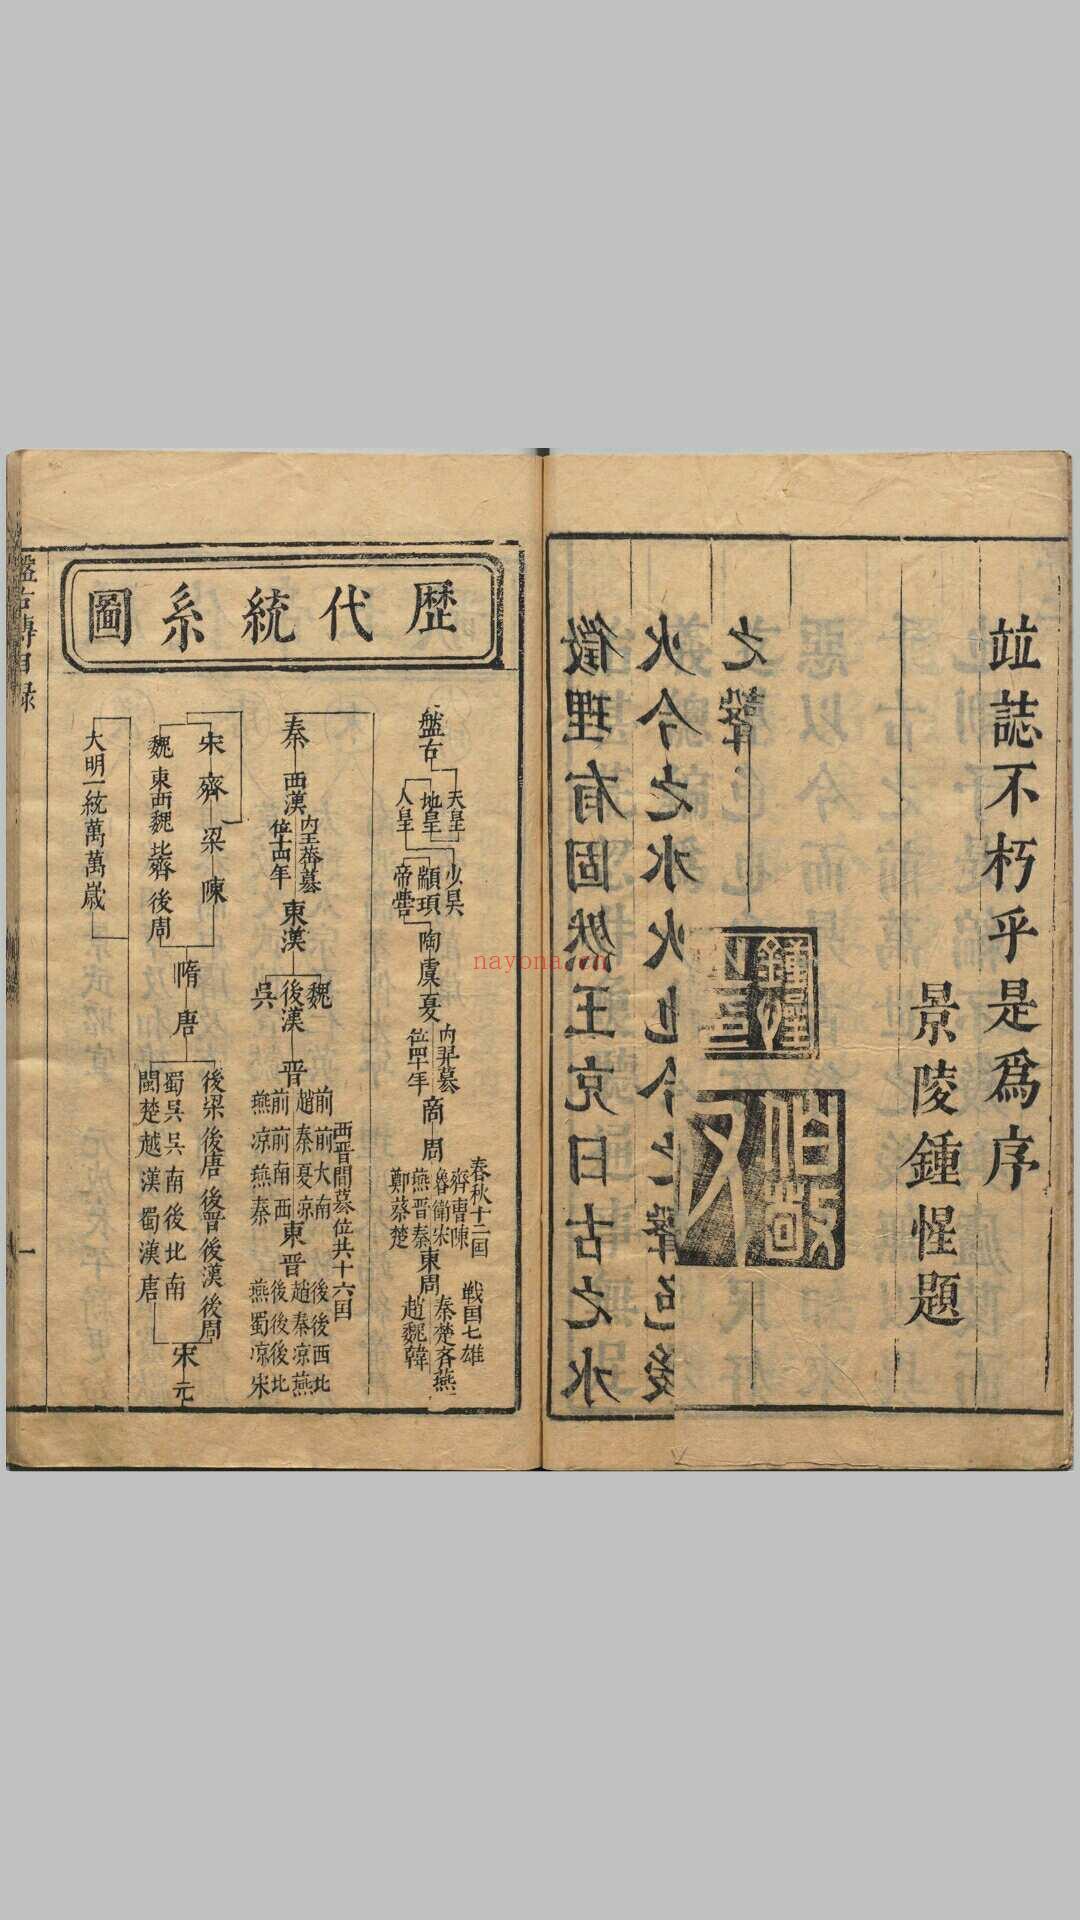 竝誌不朽乎是爲序
景陵鍾惺題
之聲
火今之水火也今之聲色後
徵理有固然王充曰古之水
鍾惺
伯敬
歷代統系圖
盤古
天皇
地皇
人皇
少昊
顓頊
帝嚳
陶虞夏
内羿篡
位四十年
商周
春秋十二囯
齊曹陳
魯衛宋
燕晉秦
鄭蔡楚
東周
戦国七雄
秦楚齐燕
趙魏韓
秦
西漢
内王莽篡
位十四年
東漢
魏
後漢
吳
晉
西晉間篡位共十六囯
前前大南
趙秦夏凉
前前南西
燕凉燕秦
東晉
後後西北
趙秦凉燕
後後後北
燕蜀凉宋
宋齊梁陳
魏東西魏北齊後周
隋唐
後梁後唐後晉後漢後周
蜀吳吳南後北南
閩楚越漢蜀漢唐
宋元
大明一統萬萬歲
盤古傳目録
一
nayona.cn